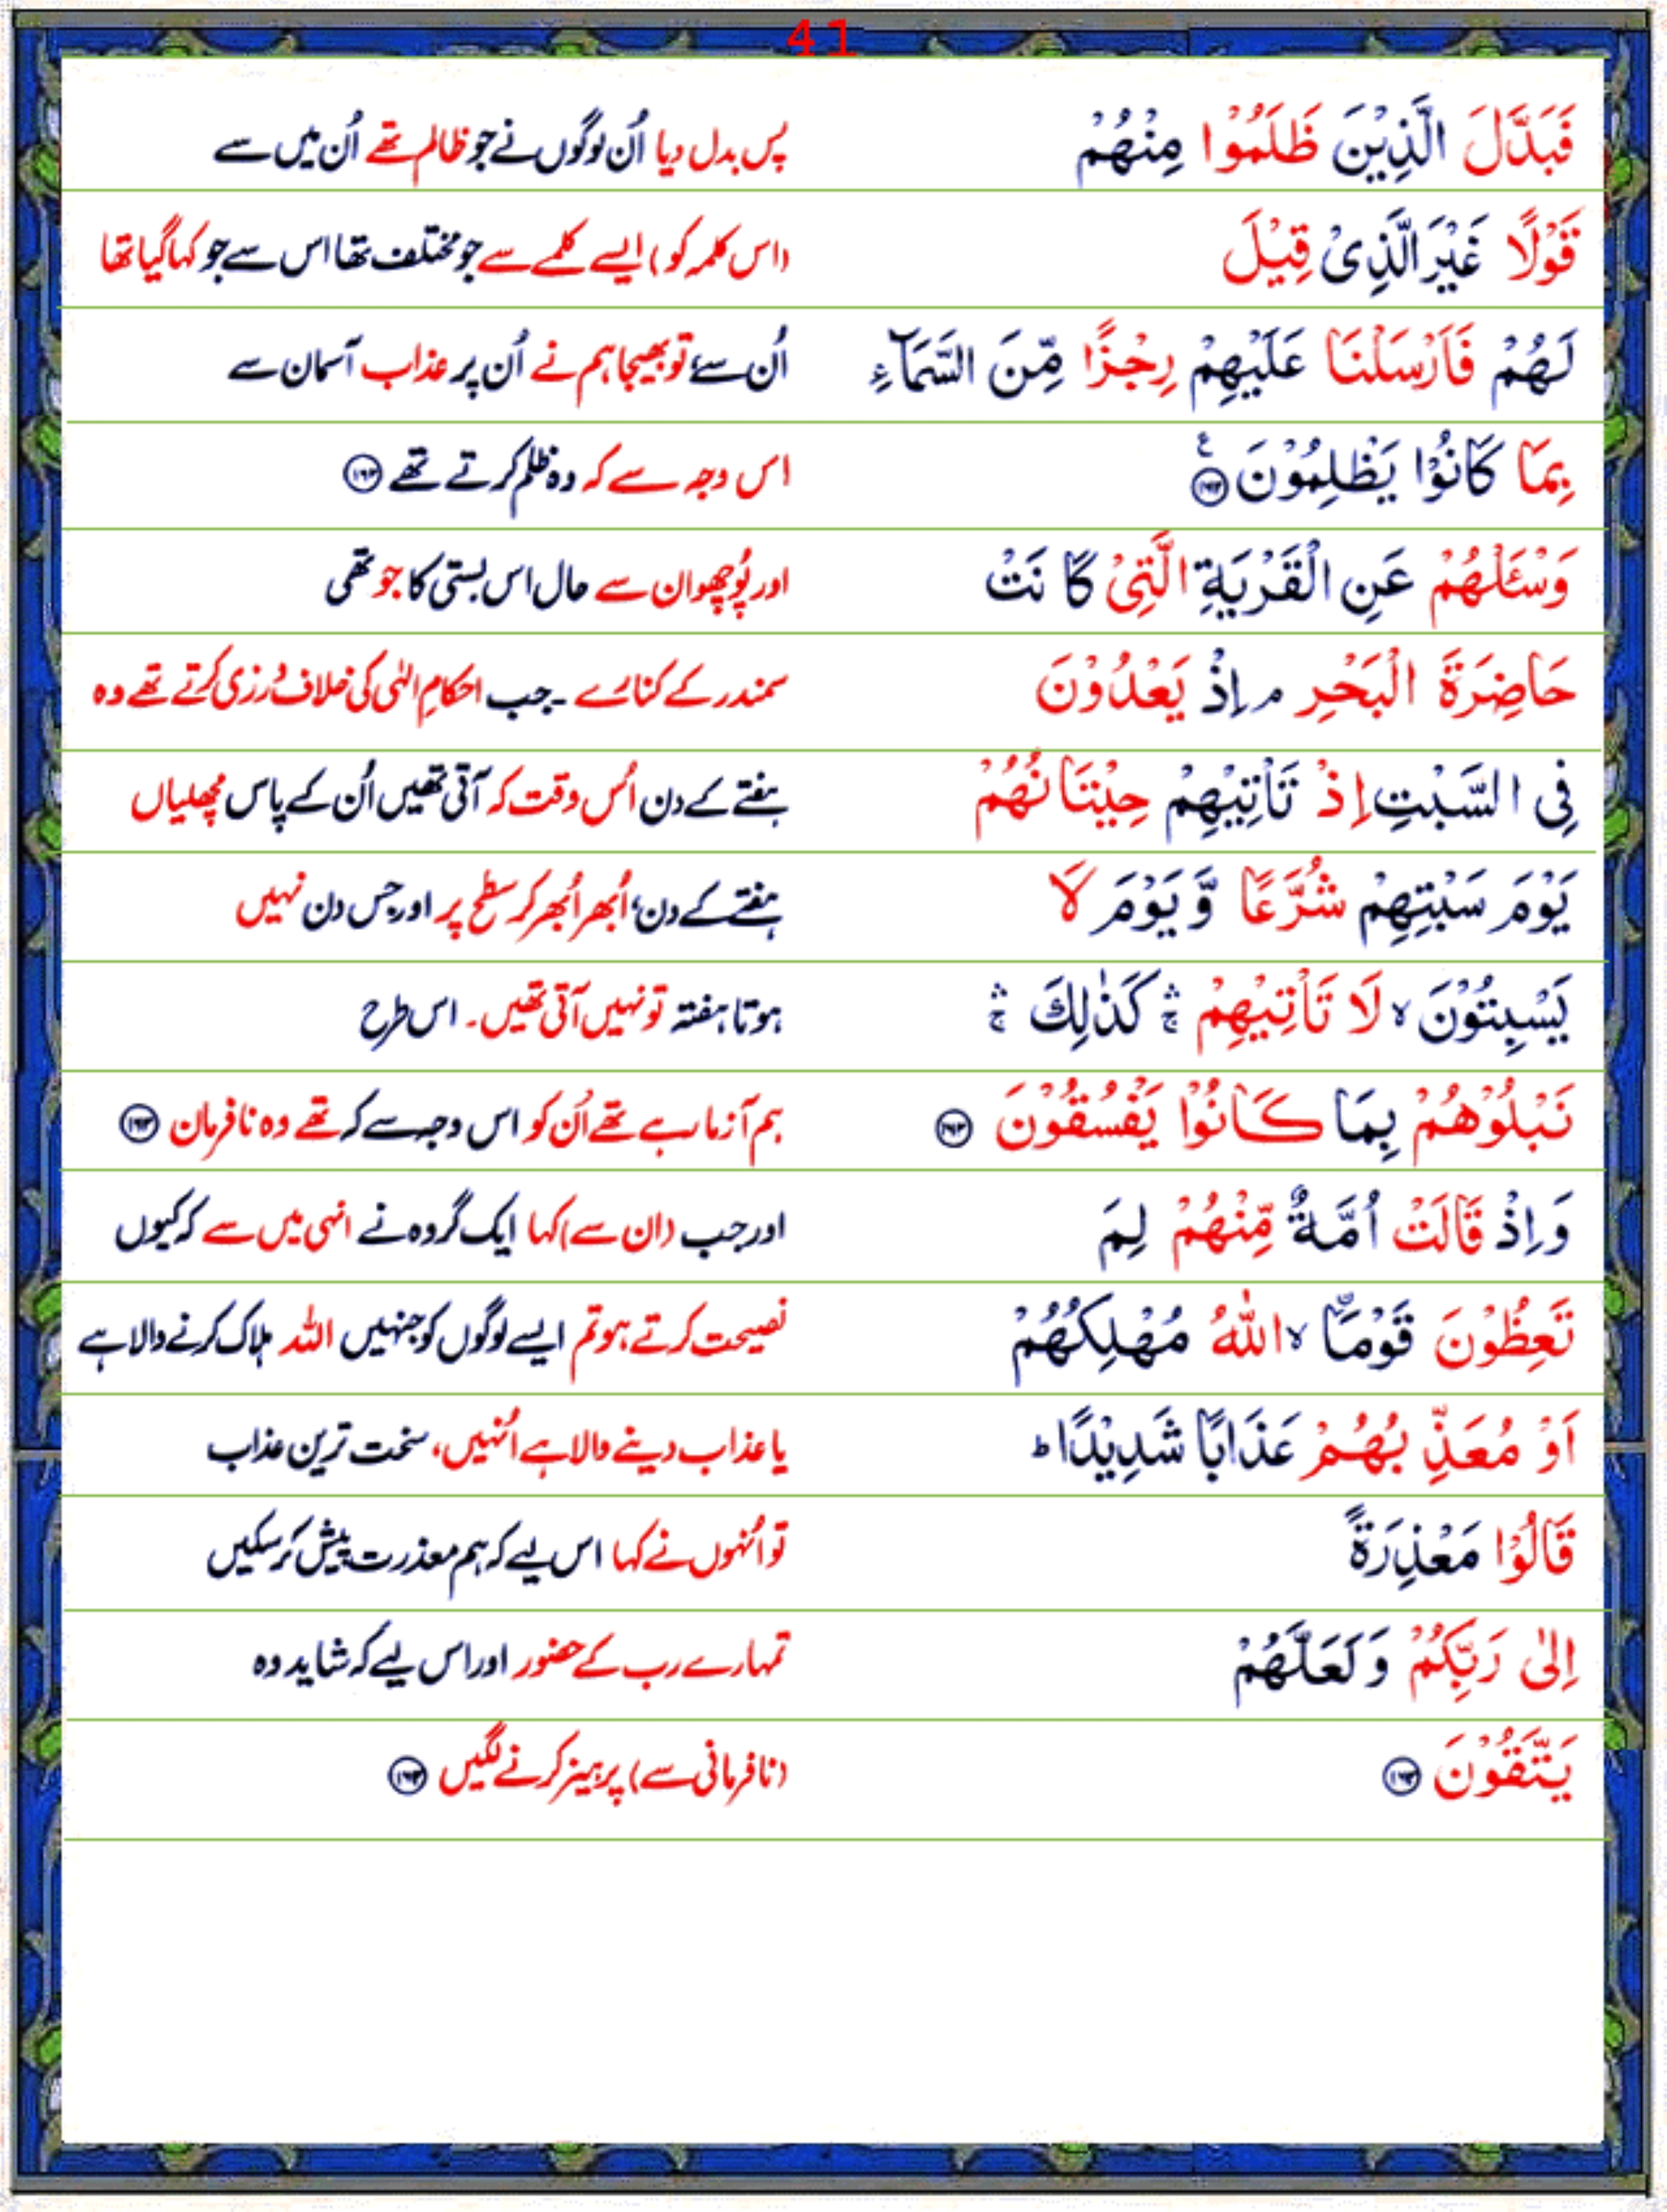 41
فَبَدَّلَ الَّذِيْنَ ظَلَمُوْا مِنْهُمْ پس بدل دیا اُن لوگوں نے جو ظالم تھے اُن میں سے
قَوْلًا غَيْرَ الَّذِىْ قِيْلَ (اس کلمہ کو) ایسے کلمے سے جو مختلف تھا اس سے جو کہا گیا تھا
لَهُمْ فَاَرْسَلْنَا عَلَيْهِمْ رِجْزًا مِّنَ السَّمَآءِ اُن سے، تو بھیجا ہم نے اُن پر عذاب آسمان سے
بِمَا كَانُوْا يَظْلِمُوْنَ ع ۱۶۲ اس وجہ سے کہ وہ ظلم کرتے تھے ۱۶۲
وَسْـَٔلْهُمْ عَنِ الْقَرْيَةِ الَّتِىْ كَا نَتْ اور پُوچھو ان سے حال اس بستی کا جو تھی
حَاضِرَةَ الْبَحْرِ م اِذْ يَعْدُوْنَ سمندر کے کنارے ۔ جب احکامِ الٰہی کی خلاف ورزی کرتے تھے وہ
فِى السَّبْتِ اِذْ تَاْتِيْهِمْ حِيْتَانُهُمْ ہفتے کے دن اُس وقت کہ آتی تھیں اُن کے پاس مچھلیاں
يَوْمَ سَبْتِهِمْ شُرَّعًا وَّ يَوْمَ لَا ہفتے کے دن، اُبھر اُبھر کر سطح پر اور جس دن نہیں
يَسْبِتُوْنَ ۙ لَا تَاْتِيْهِمْ ۛۚ كَذٰلِكَ ۛۚ ہوتا ہفتہ تو نہیں آتی تھیں۔ اس طرح
نَبْلُوْهُمْ بِمَا كَانُوْا يَفْسُقُوْنَ ۱۶۳ ہم آزما رہے تھے اُن کو اس وجہ سے کہ تھے وہ نافرمان ۱۶۳
وَاِذْ قَالَتْ اُمَّةٌ مِّنْهُمْ لِمَ اور جب (ان سے) کہا ایک گروہ نے انہی میں سے کہ کیوں
تَعِظُوْنَ قَوْمَاْ ۙ اللّٰهُ مُهْلِكُهُمْ نصیحت کرتے ہو تم ایسے لوگوں کو جنہیں اللہ ہلاک کرنے والا ہے
اَوْ مُعَذِّ بُهُمْ عَذَابًا شَدِيْدًا ط یا عذاب دینے والا ہے اُنہیں، سخت ترین عذاب
قَالُوْا مَعْذِرَةً تو اُنہوں نے کہا اس لیے کہ ہم معذرت پیش کرسکیں
اِلٰى رَبِّكُمْ وَلَعَلَّهُمْ تمہارے رب کے حضور اور اس لیے کہ شاید وہ
يَتَّقُوْنَ ۱۶۴ (نافرمانی سے) پرہیز کرنے لگیں ۱۶۴